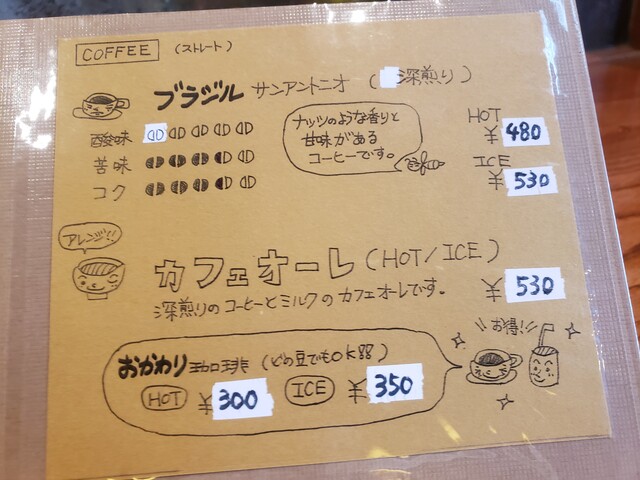 COFFEE (ストレート)
ブラジル サンアントニオ ( 深煎り)
酸味
苦味
コク
ナッツのような香りと
甘味がある
コーヒーです。
HOT
¥480
ICE
¥530
アレンジ!!
カフェオーレ(HOT/ICE)
深煎りのコーヒーとミルクのカフェオーレです。
¥530
おかわり珈琲 (どの豆でもOK
HOT ¥300 ICE ¥350
\\お得!//